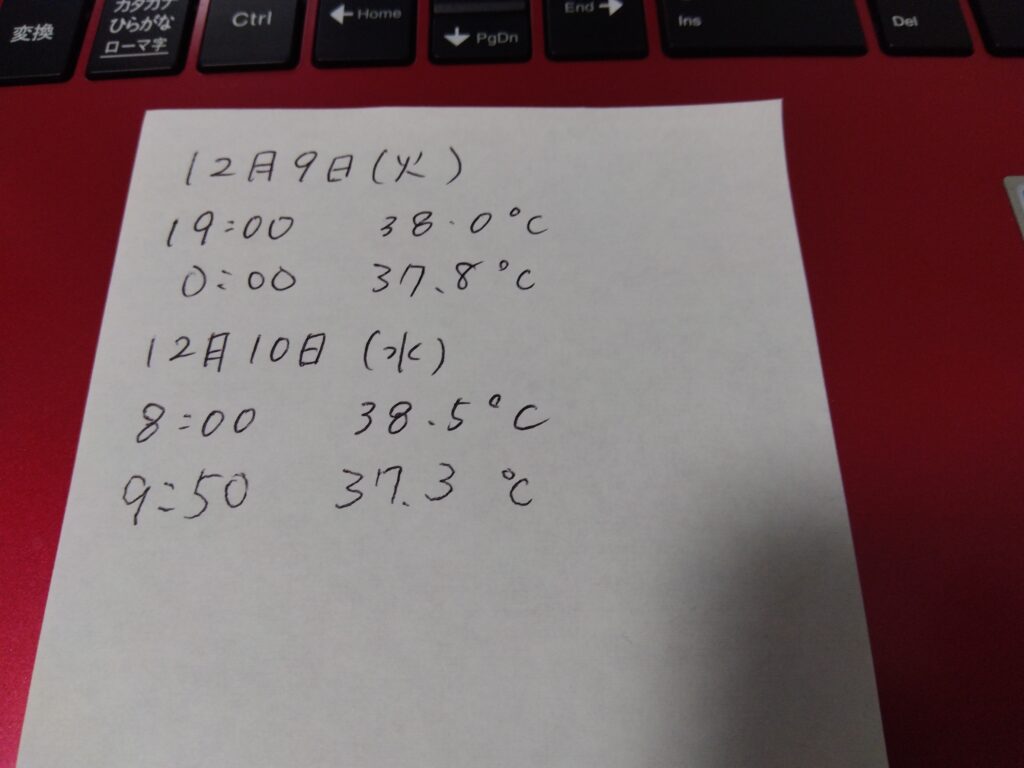 変換
カタカナ
ひらがな
ローマ字
Ctrl
←Home
↓PgDn
End→
Ins
Del
12月9日(火)
19:00 38.0℃
0:00 37.8℃
12月10日(水)
8:00 38.5℃
9:50 37.3℃